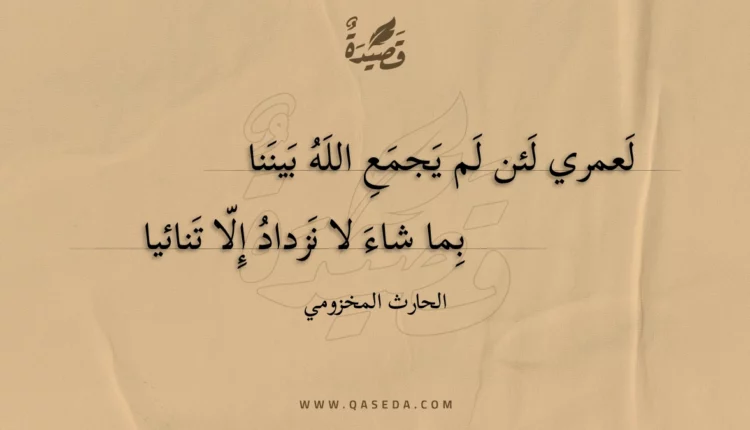 قَصِيدَةٌ
لَعمري لَئن لَم يَجمَعِ اللَهُ بَينَنا
بِما شاءَ لا نَزدادُ إِلّا تَنائيا
الحارث المخزومي
WWW.QASEDA.COM